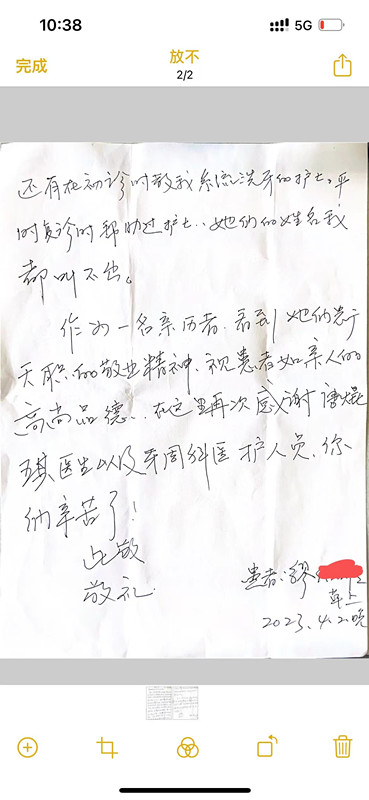 10:38
5G
完成
放不
2/2
还有在初诊时教我系流洗牙的护士,平
时复诊时帮助过护士..她们的姓名我
都叫不出。
作为一名亲历者.看到她们忠于
天职的敬业精神、视患者如亲人的
高尚品德..在这里再次感谢唐焜
琪医生以及牙周科医护人员、你
们辛苦了!
此致
敬礼
患者:缪
草上
2023.4.2.晚